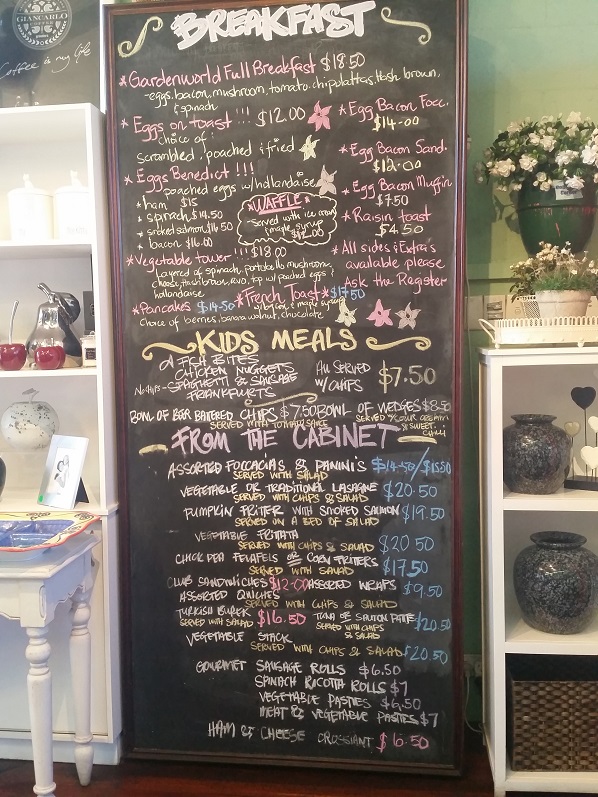 GIANCARLO
COFFEE
Coffee is my life
BREAKFAST
*Gardenworld Full Breakfast $18.50
eggs, bacon, mushroom, tomato, chipolattas, Hash brown,
& spinach
* Eggs on toast !!! $12.00
choice of:
scrambled, poached & fried
* Eggs Benedict !!!
poached eggs w/hollandaise
* ham $15
* spinach $14.50
* smoked salmon $16.50
* bacon $16.00
* WAFFLE *
Served with ice cream
& maple syrup
$12.00
*Vegetable tower !!! $18.00
Layered of spinach, portobello mushroom,
cheese, hash brown, avo, top w/ poached eggs &
hollandaise
*Egg Bacon Focc.
$14.00
*Egg Bacon Sand.
$12.00
*Egg Bacon Muffin
$7.50
*Raisin toast
$4.50
*All sides & Extra's
available please
Ask the Register
*Pancakes $14.50 *French Toast* $17.50
w/ bacon & maple syrup
Choice of berries, banana walnut, chocolate
KIDS MEALS
FISH BITES
CHICKEN NUGGETS
No chips - SPAGHETTI & SAUSAGE
FRANKFURTS
ALL SERVED
W/ CHIPS
$7.50
BOWL OF BEER BATTERED CHIPS $7.50 BOWL OF WEDGES $8.50
SERVED WITH TOMATO SAUCE
SERVED W/ SOUR CREAM
& SWEET CHILLI
FROM THE CABINET
ASSORTED FOCCACIAS & PANINIS $14.50/$15.50
SERVED WITH SALAD
VEGETABLE OR TRADITIONAL LASAGNE $20.50
SERVED WITH CHIPS & SALAD
PUMPKIN FRITTER WITH SMOKED SALMON $19.50
SERVED ON A BED OF SALAD
VEGETABLE FRITTATA
SERVED WITH CHIPS & SALAD $20.50
CHICK PEA FELAFELS OR CORN FRITTERS
SERVED WITH SALAD $17.50
CLUB SANDWICHES $12.00 ASSORTED WRAPS $9.50
ASSORTED QUICHES
SERVED WITH CHIPS & SALAD
TURKISH BUREK $16.50
SERVED WITH SALAD
TUNA OR SALMON PATTIE $20.50
SERVED WITH CHIPS
& SALAD
VEGETABLE STACK
SERVED WITH CHIPS & SALAD $20.50
GOURMET SAUSAGE ROLLS $6.50
SPINACH RICOTTA ROLLS $7
VEGETABLE PASTIES $6.50
MEAT & VEGETABLE PASTIES $7
HAM & CHEESE CROSSIANT $6.50